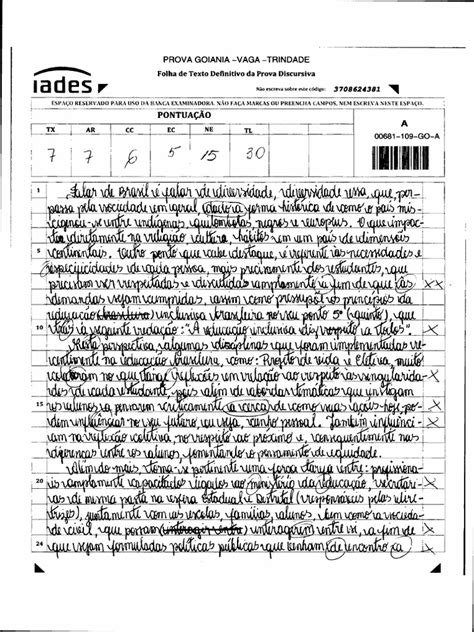 PROVA GOIANIA –VAGA –TRINDADE
iades
Folha de Texto Definitivo da Prova Discursiva
Não escreva sobre este código: 3708624381
ESPAÇO RESERVADO PARA USO DA BANCA EXAMINADORA. NÃO FAÇA MARCAS OU PREENCHA CAMPOS, NEM ESCREVA NESTE ESPAÇO.
PONTUAÇÃO
TX AR CC EC NE TL
7 7 6 5 15 30
A
00681-109-GO-A
1 Falar de Brasil é falar de diversidade, diversidade essa, que, per-
passa pela sociedade em geral, forma histórica de como o país mis-
cigenou-se entre indígenas, quilombolas, negros e europeus. O que impac-
ta diretamente na religião, cultura e hábitos em um país de dimensões
5 continentais. Outro ponto que cabe destaque, é referente às necessidades e
especificidades de cada pessoa, mais precisamente dos estudantes, que
precisam ser respeitadas e discutidas amplamente a fim de que as X X
demandas sejam cumpridas, assim como pressupõe os princípios da
educação brasileira inclusiva brasileira no seu ponto 5º (quinto), que
10 trás a seguinte redação: "A educação inclusiva diz respeito a todos". X
Nesta perspectiva, algumas disciplinas que foram implementadas re-
centemente na educação brasileira, como: Projeto de vida e Eletiva, muito
colaboram no que tange reflexões em relação ao respeito as singularida- X
des de cada estudante, pois além de abordar temáticas que instigam
15 os alunos a pensarem criticamente a cerca de como suas ações hoje, po- X
dem influenciar no seu futuro, ou seja, senho pessoal. Também influenci-
am na reflexão coletiva, no respeito ao próximo e, consequentemente nas
diferenças entre os alunos, fomentando o pensamento de equidade.
Além do mais, torna-se pertinente uma força tarefa entre: profissiona-
20 is amplamente capacitados ligados ao ministério da educação, secretári- X
as de mesma pasta na esfera Estadual e Distrital (responsáveis pelas dire-
trizes), juntamente com as escolas, famílias, alunos, bem como a socieda-
de civil, que possam interagirem entre si, a fim de X
24 que sejam formuladas políticas públicas que tenham de encontro a X